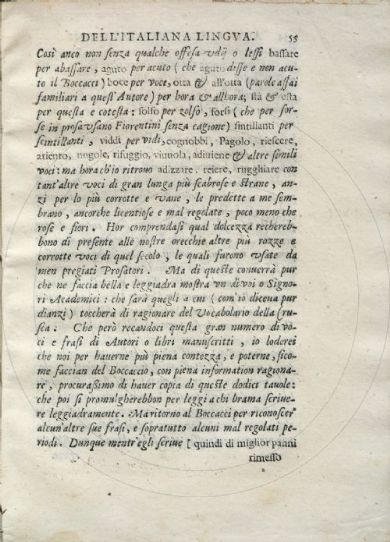 DELL'ITALIANA LINGVA. 55
Così anco non senza qualche offesa vdij o lessi bassare
per abassare, aguto per acuto (che aguto disse e non acu-
to il Boccacci) boce per voce, otta & all'otta (parole assai
familiari a quest'Autore) per hora & allhora; sta & esta
per questa e cotesta: solfo per zolfo, forsi (che per for-
se in prosa vsano Fiorentini senza cagione) sintillanti per
scintillanti, viddi per vidi, cognobbi, Pagolo, riescere,
ariento, nugole, rifuggio, viuuola, adiuiene & altre simili
voci: ma hora ch'io ritrouo adizzare. reiere, rugghiare con
tant'altre voci di gran lunga più scabrose e strane, an-
zi per lo più corrotte e vane, le predette a me sem-
brano, ancorche licentiose e mal regolate, poco meno che
rose e fiori. Hor comprendasi qual dolcezza recherebb-
bono di presente alle nostre orecchie altre più rozze e
corrotte voci di quel secolo, le quali furono vsate da
men pregiati Prosatori. Ma di queste conuerrà pur
che ne faccia bella e leggiadra mostra vn di voi o Signo-
ri Academici: che sarà quegli a cui (com'io diceua pur
dianzi) toccherà di ragionare del Vocabolario della Cru-
sca: Che però recandoci questa gran numero di vo-
ci e frasi di Autori o libri manuscritti, io loderei
che noi per hauerne più piena contezza, e poterne, sico-
me faccian del Boccaccio, con piena information ragiona-
re, procurassimo di hauer copia di queste dodici tauole:
che poi si promulgherebbon per leggi a chi brama scriue-
re leggiadramente. Ma ritorno al Boccacci per riconoscer
alcun'altre sue frasi, e sopratutto alcuni mal regolati pe-
riodi. Dunque mentr'egli scriue [quindi di miglior panni
rimesso